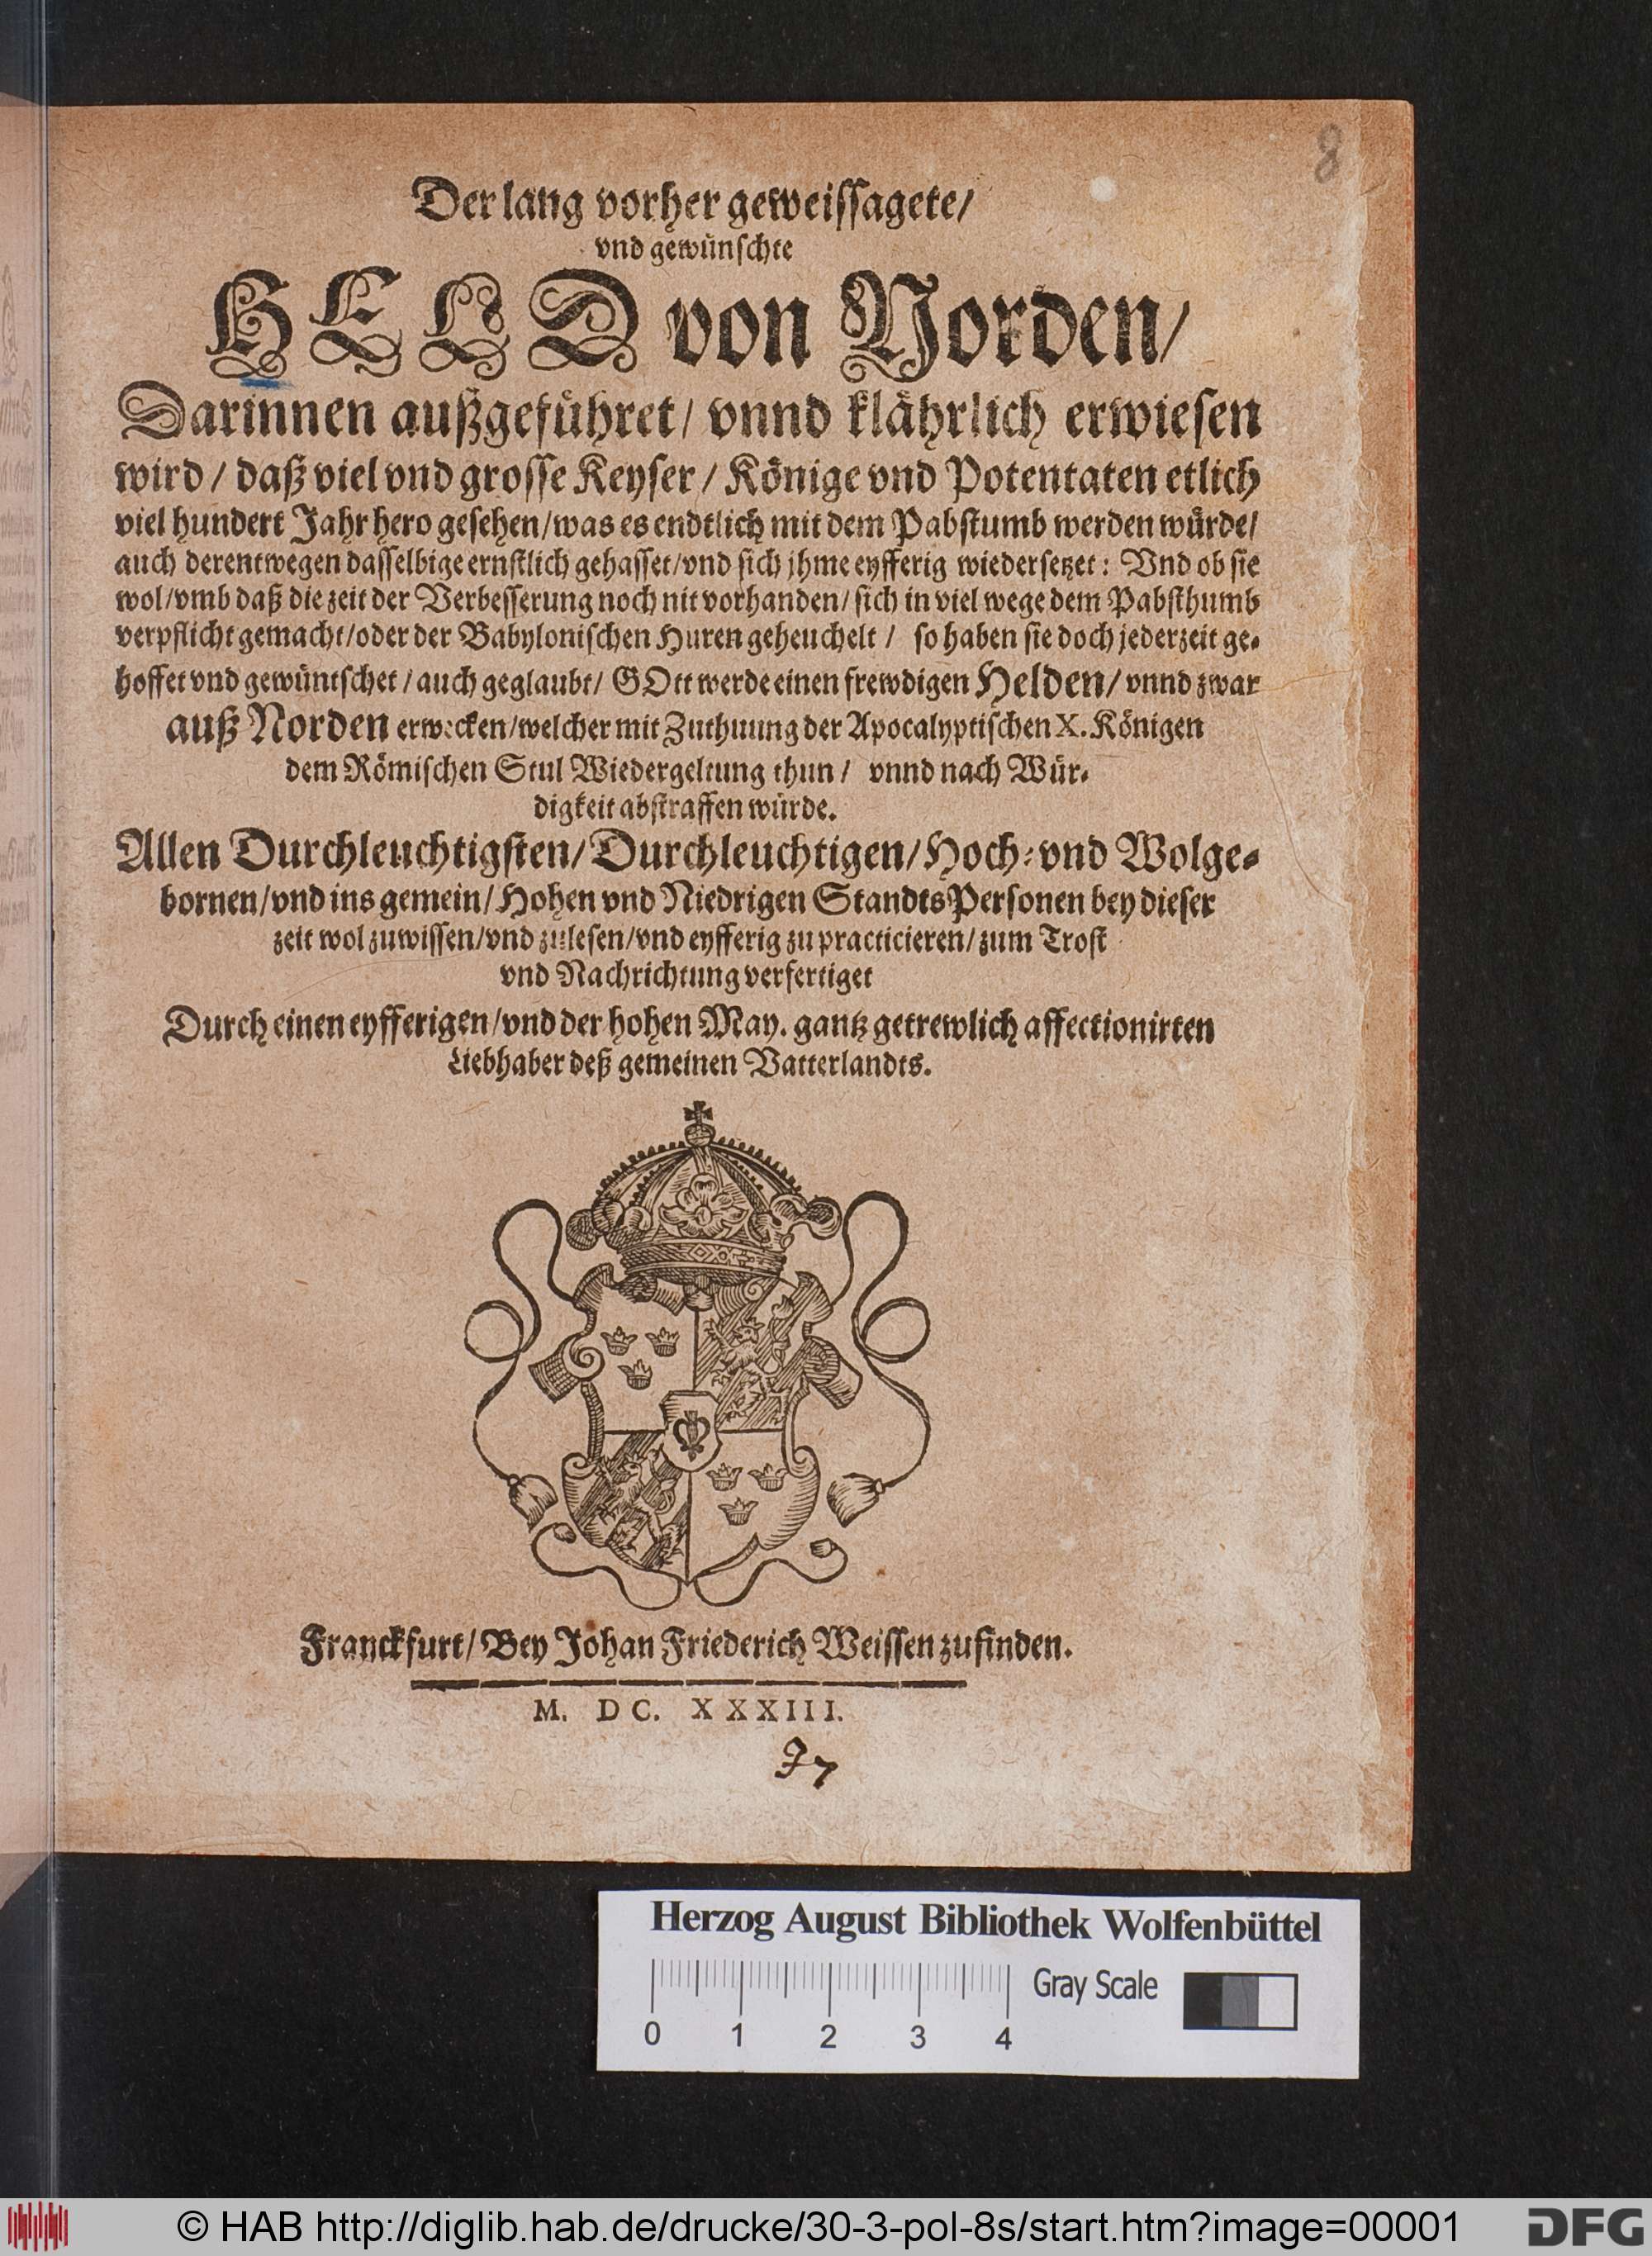 8
Der lang vorher geweissagete/
vnd gewünschte
HELD von Norden/
Darinnen außgeführet/ vnnd klährlich erwiesen
wird/ daß viel vnd grosse Keyser/ Könige vnd Potentaten etlich
viel hundert Jahr hero gesehen/was es endtlich mit dem Pabstumb werden würde/
auch derentwegen dasselbige ernstlich gehasset/vnd sich jhme eyfferig wiedersetzet: Vnd ob sie
wol/vmb daß die zeit der Verbesserung noch nit vorhanden/ sich in viel wege dem Pabsthumb
verpflicht gemacht/oder der Babylonischen Huren geheuchelt/ so haben sie doch jederzeit ge-
hoffet vnd gewüntschet/auch geglaubt/ GOtt werde einen frewdigen Helden/ vnnd zwar
auß Norden erwecken/welcher mit Zuthuung der Apocalyptischen X. Königen
dem Römischen Stul Wiedergeltung thun/ vnnd nach Wür-
digkeit abstraffen würde.
Allen Durchleuchtigsten/ Durchleuchtigen/ Hoch- vnd Wolge-
bornen/vnd ins gemein/ Hohen vnd Niedrigen StandtsPersonen bey dieser
zeit wol zuwissen/vnd zulesen/vnd eyfferig zu practicieren/ zum Trost
vnd Nachrichtung verfertiget
Durch einen eyfferigen/vnd der hohen May. gantz getrewlich affectionirten
Liebhaber deß gemeinen Vatterlandts.
Franckfurt/ Bey Johan Friederich Weissen zufinden.
M. DC. XXXIII.
Herzog August Bibliothek Wolfenbüttel
Gray Scale
0 1 2 3 4
© HAB http://diglib.hab.de/drucke/30-3-pol-8s/start.htm?image=00001
DFG